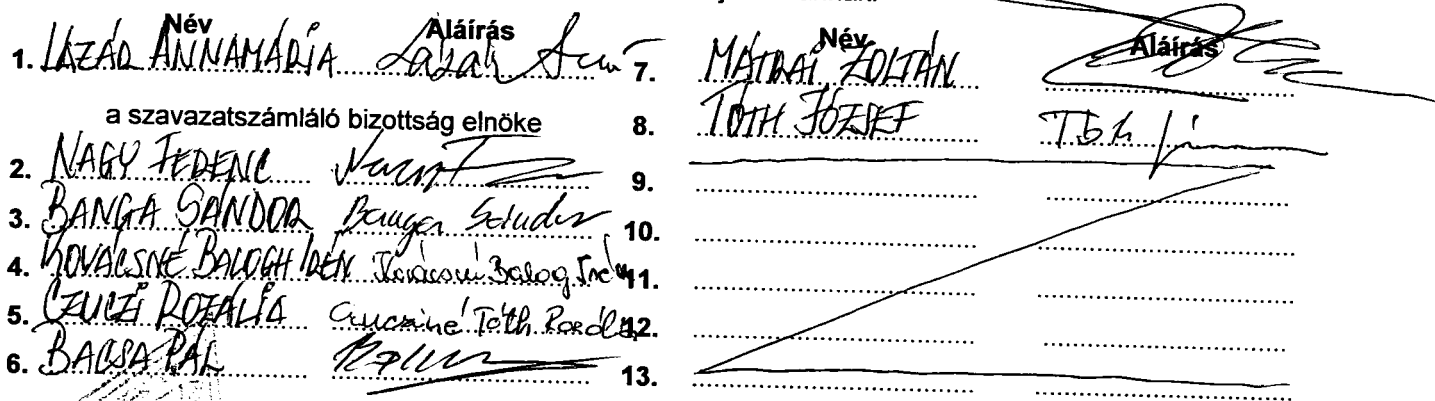 Név Aláírás
1. LAZÁR ANNAMÁRIA Lázár
a szavazatszámláló bizottság elnöke
2. NAGY FERENC
3. BANGA SÁNDOR Banga Sándor
4. KOVÁCSNÉ BALOGH IRÉN Kovácsné Balog Irén
5. CZUCZI ROZÁLIA Czucziné Tóth Rozália
6. BACSA PÁL
Név Aláírás
7. MÁTRAI ZOLTÁN
8. TÓTH JÓZSEF Tóth
9.
10.
11.
12.
13.